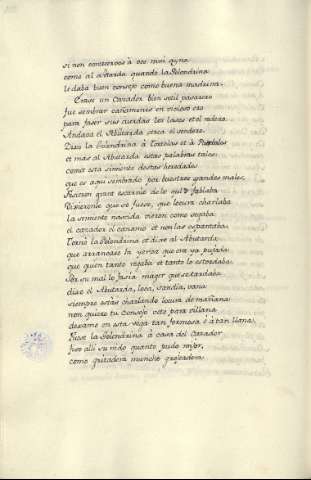 si non contescervos à vos casi ayna
como al avutarda quando la Golondrina
le daba bien consejo como buena madrina.
Erase un Cazador bien sotil paxarero
fue sembrar cañamones en vicioso ero
para faser sus cuerdas, e lasos et el redero
Andava el Abutarda cerca el sendero.
Dixo la Golondrina à Tortolas et à Pardales
et mas al Abutarda estas palabras tales:
comed esta simiente destas heredades
que es aqui sembrado por nuestros grandes males.
Fisieron grant escarnio de lo que les fablaba
Dixieronle que se fuese, que locura charlaba
la simiente nascida vieron como regaba
el cazador el cañamo et non las espantaba.
Tornó la Golondrina et dixo al Abutarda
que arrancase la yerva que era ya pujada,
que quien tanto regaba et tanto le escardaba
Por su mal lo fasia maguer que se tardaba.
dixo el Abutarda, loca, sandia, vana
siempre estás charlando locura de mañana:
non quiero tu consejo vete para villana
dexame en esta vega tan fermosa è à tan llana.
Fuese la Golondrina à casa del Cazador
fiso alli su nido quanto pudo mejor,
como gritadera muncho gorjeadora